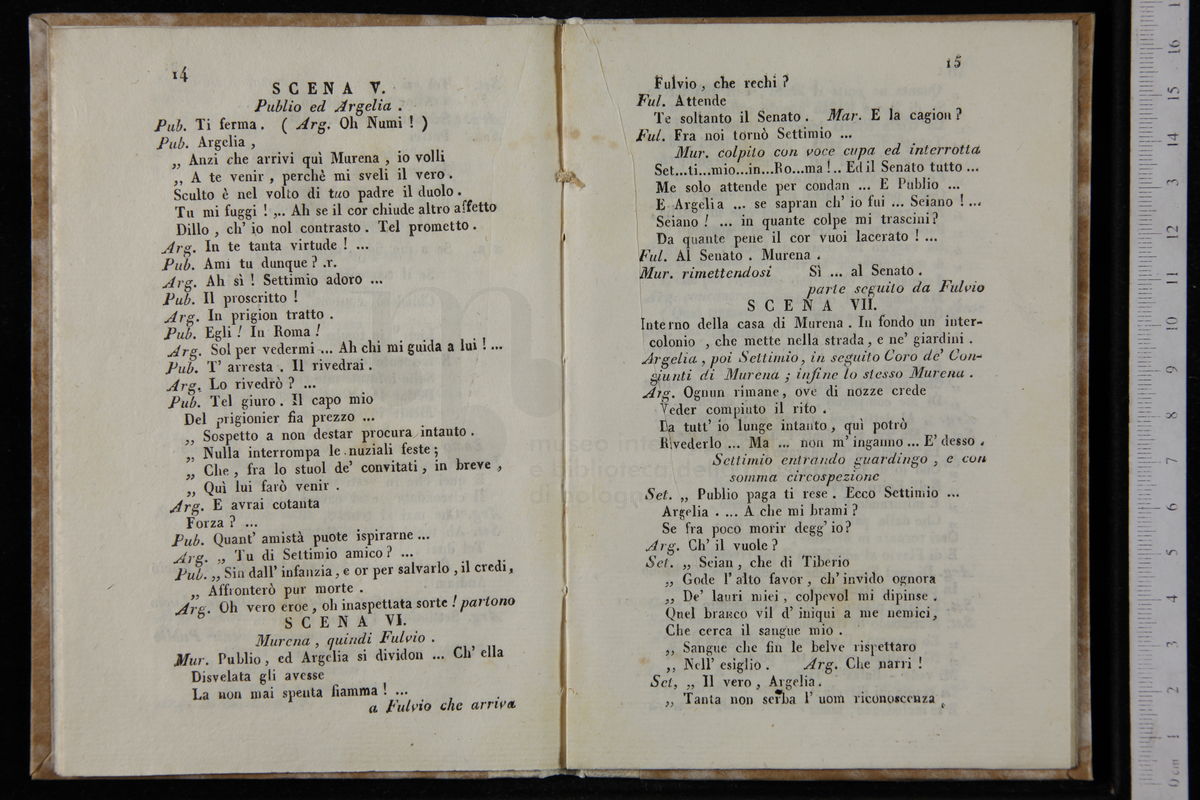 14
SCENA V.
Publio ed Argelia .
Pub. Ti ferma. ( Arg. Oh Numi ! )
Pub. Argelia ,
„ Anzi che arrivi quì Murena , io volli
„ A te venir , perchè mi sveli il vero .
Sculto è nel volto di tuo padre il duolo .
Tu mi fuggi ! ,.. Ah se il cor chiude altro affetto
Dillo , ch' io nol contrasto . Tel prometto .
Arg. In te tanta virtude ! ...
Pub. Ami tu dunque ? .r.
Arg. Ah sì ! Settimio adoro ...
Pub. Il proscritto !
Arg. In prigion tratto .
Pub. Egli ! In Roma !
Arg. Sol per vedermi ... Ah chi mi guida a lui ! ...
Pub. T' arresta . Il rivedrai .
Arg. Lo rivedrò ? ...
Pub. Tel giuro . Il capo mio
Del prigionier fia prezzo ...
„ Sospetto a non destar procura intanto .
„ Nulla interrompa le nuziali feste ;
„ Che , fra lo stuol de' convitati , in breve ,
„ Quì lui farò venir .
Arg. E avrai cotanta
Forza ? ...
Pub. Quant' amistà puote ispirarne ...
Arg. „ Tu di Settimio amico ? ...
Pub. „ Sin dall' infanzia , e or per salvarlo , il credi ,
„ Affronterò pur morte .
Arg. Oh vero eroe , oh inaspettata sorte ! partono
SCENA VI.
Murena , quindi Fulvio .
Mur. Publio , ed Argelia si dividon ... Ch' ella
Disvelata gli avesse
La non mai spenta fiamma ! ...
a Fulvio che arriva
15
Fulvio , che rechi ?
Ful. Attende
Te soltanto il Senato . Mar. E la cagion ?
Ful. Fra noi tornò Settimio ...
Mur. colpito con voce cupa ed interrotta
Set...ti...mio...in...Ro...ma !.. Ed il Senato tutto ...
Me solo attende per condan ... E Publio ...
E Argelia ... se sapran ch' io fui ... Seiano ! ...
Seiano ! ... in quante colpe mi trascini ?
Da quante pene il cor vuoi lacerato ! ...
Ful. Al Senato . Murena .
Mur. rimettendosi Sì ... al Senato .
parte seguito da Fulvio
SCENA VII.
Interno della casa di Murena . In fondo un inter-
colonio , che mette nella strada , e ne' giardini .
Argelia , poi Settimio , in seguito Coro de' Con-
giunti di Murena ; infine lo stesso Murena .
Arg. Ognun rimane , ove di nozze crede
Veder compiuto il rito .
Da tutt' io lunge intanto , quì potrò
Rivederlo ... Ma ... non m' inganno ... E' desso .
Settimio entrando guardingo , e con
somma circospezione
Set. „ Publio paga ti rese . Ecco Settimio ...
Argelia . ... A che mi brami ?
Se fra poco morir degg' io ?
Arg. Ch' il vuole ?
Set. „ Seian , che di Tiberio
„ Gode l' alto favor , ch' invido ognora
„ De' lauri miei , colpevol mi dipinse .
Quel branco vil d' iniqui a me nemici ,
Che cerca il sangue mio .
„ Sangue che fin le belve rispettaro
„ Nell' esiglio . Arg. Che narri !
Set, „ Il vero , Argelia .
„ Tanta non serba l' uom riconoscenza ,